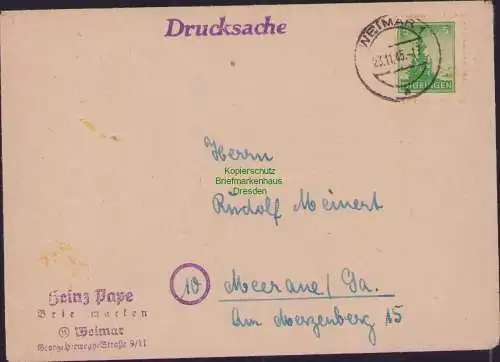 Drucksache
WEIMAR
23.11.45.
THÜRINGEN
Herrn
Kopierschutz
Briefmarkenhaus
Dresden
Rudolf Meinert
10 Meerane/Sa.
Am Merzenberg 15
Heinz Pape
Briefmarken
Weimar